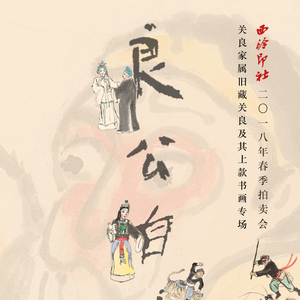 西泠印社 二〇一八年春季拍卖会
关良家属旧藏关良及其上款书画专场
良公自